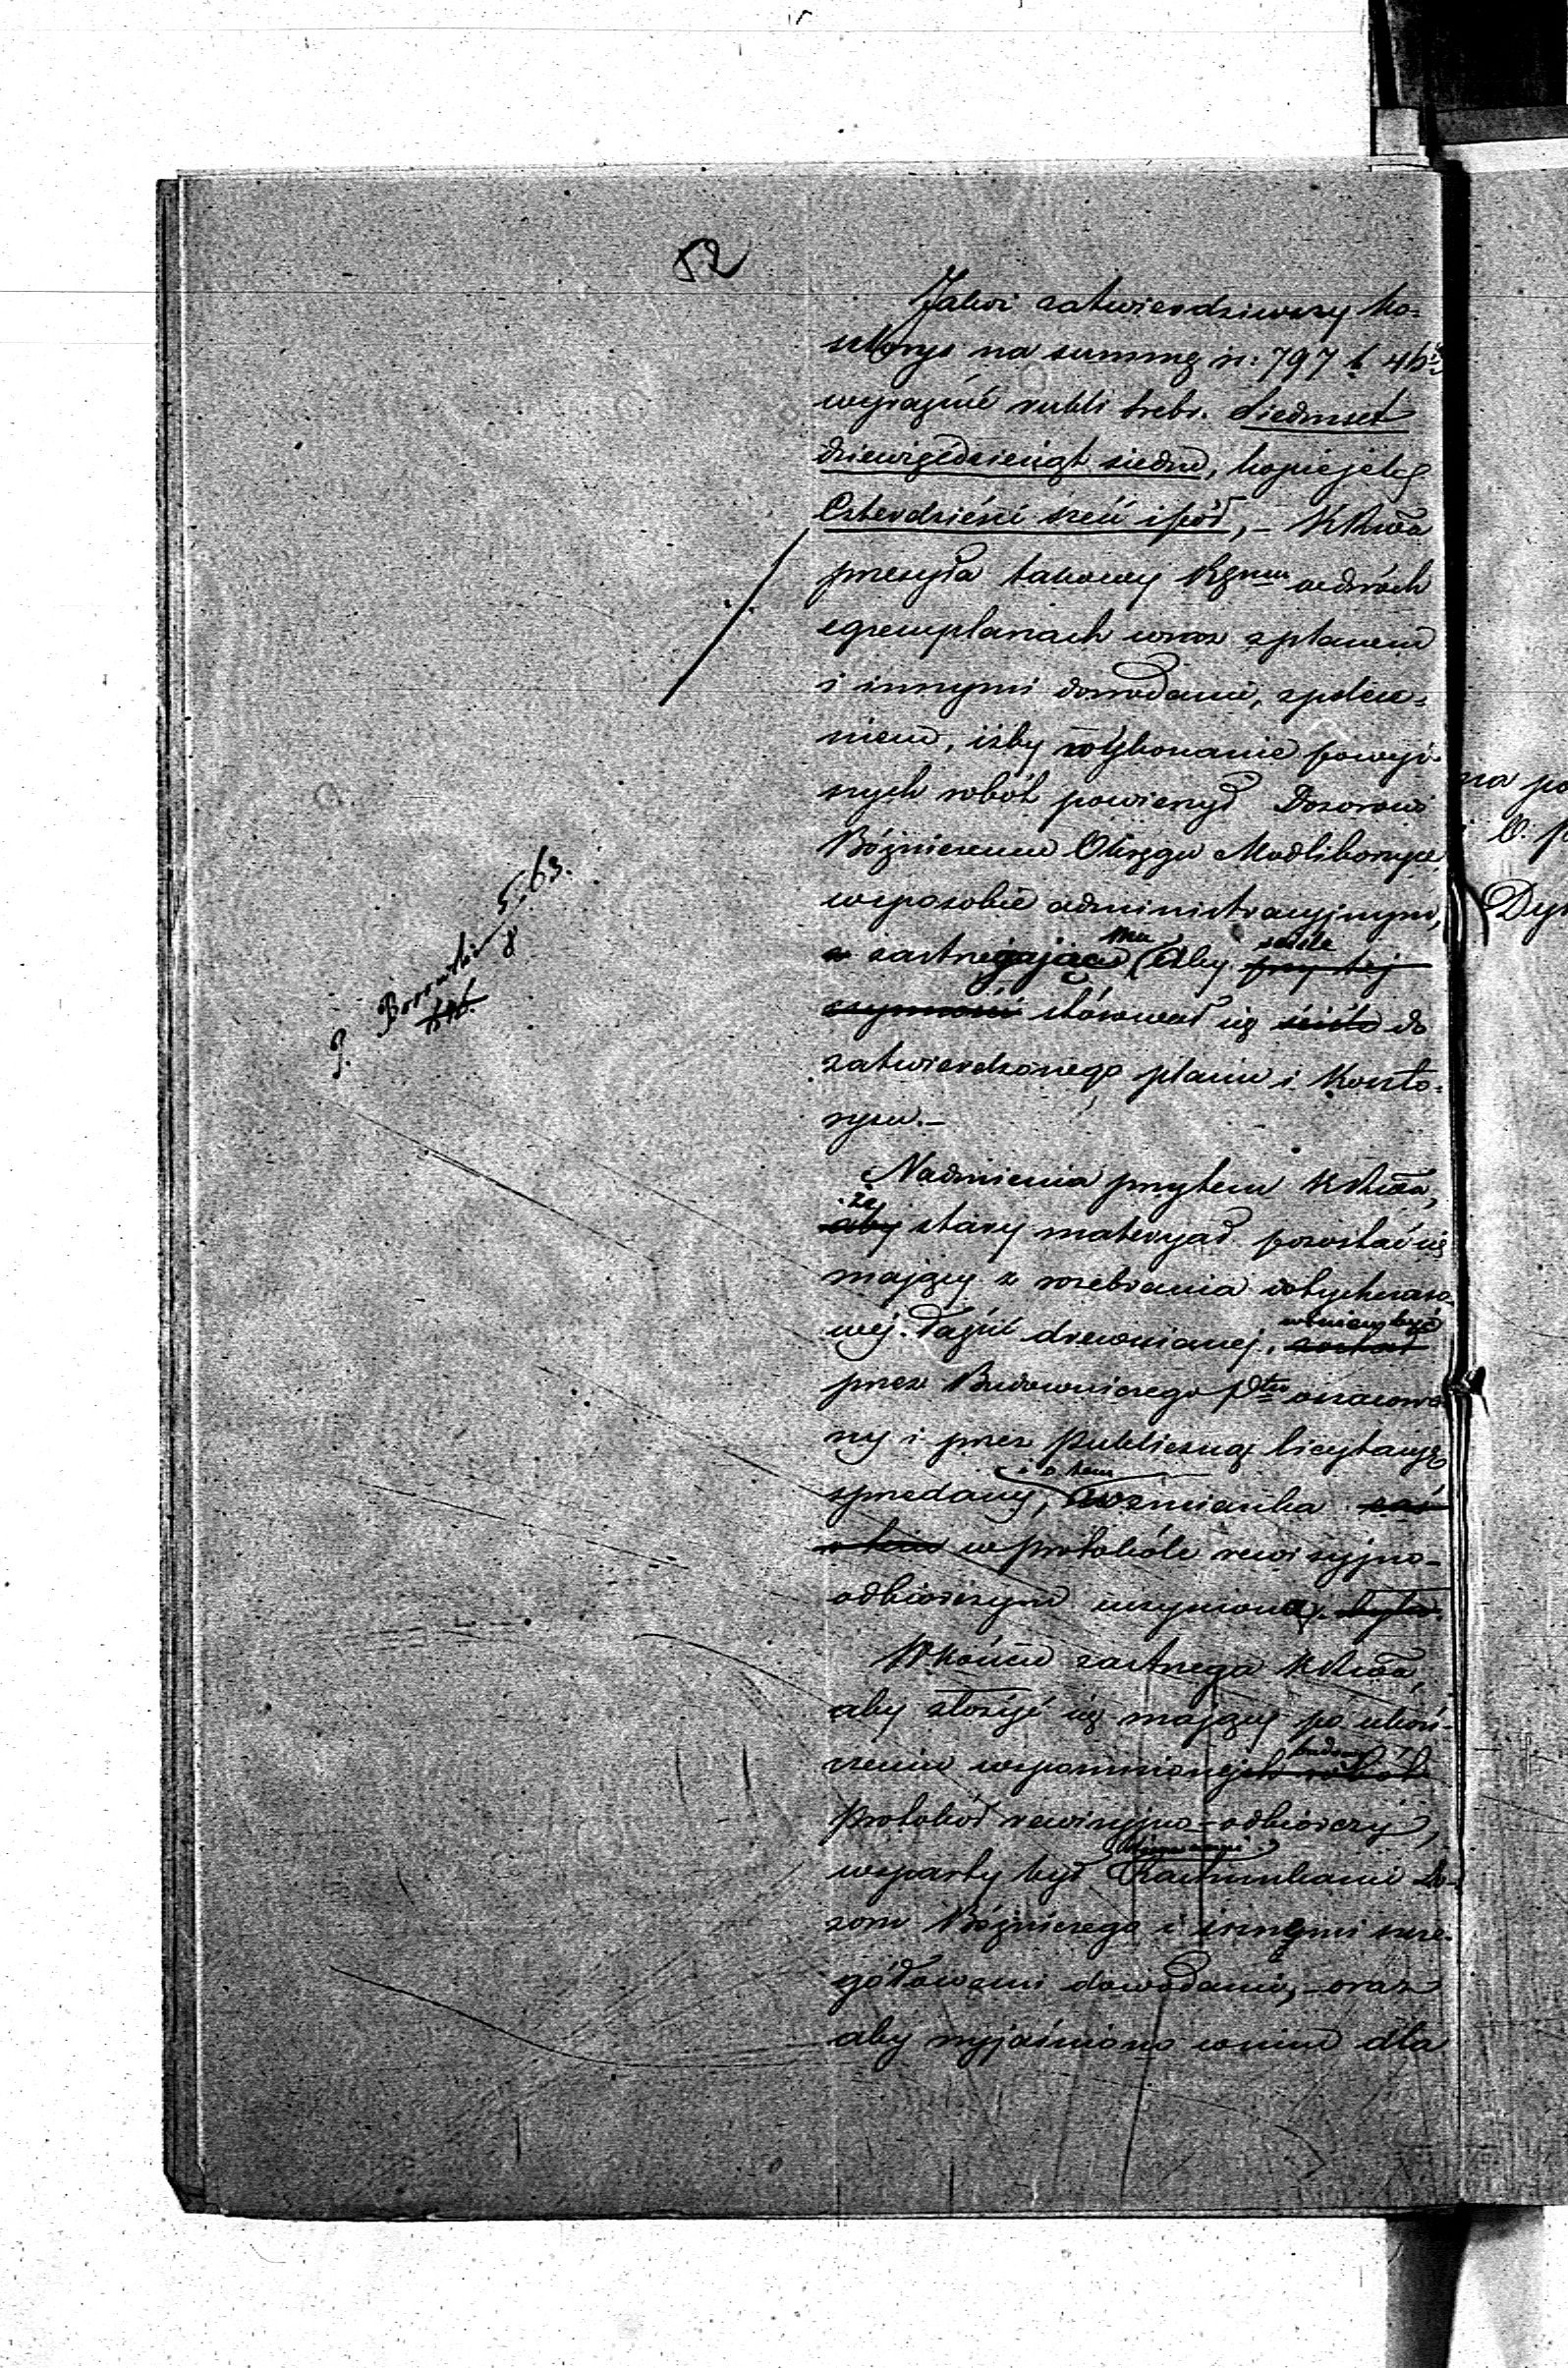 52
Jakoż zatwierdziwszy ko-
sztorys na summę rs: 797 k 46½
wyraźnie rubli srebr. Siedmset
dziewięćdziesiąt siedm, kopiejek
Czterdzieści sześć i pół, – KRwa
przesyła takowy RGnmu w dwóch
egzemplarzach wraz z planem
i innymi dowodami, z polece-
niem, iżby wykonanie powyż-
szych robót powierzył Dozorowi
Bóżniczemu Okręgu Modliborzyce
w sposobie administracyjnym,
ma ściśle
a zastrzegając aby przy tej
czynności stósował się ściśle do
zatwierdzonego planu i Koszto-
rysu. –
Nadmienia przytem KRwa,
że
aby stary materyał pozostać się
mający z rozebrania dotychczaso-
wéj łaźni drewnianej, został
winien być
przez Budowniczego Ptu oszacowa-
ny i przez publiczną licytacyę
i o tem
sprzedany, wzmianka zaś
o tem w protokóle rewizyjno-
odbiorczym uczyniona. była
W końcu zastrzega KRwa,
aby złożyć się mający po ukoń-
czeniu wspomnionych robót
budowy
Protokół rewizyjno-odbiorczy,
wsparty był Rachunkami Do-
zoru Bóżniczego i innymi szcze-
gółowemi dowodami, – oraz
aby wyjaśniono w nim dla
P. 5/8 63.
na po
Dy